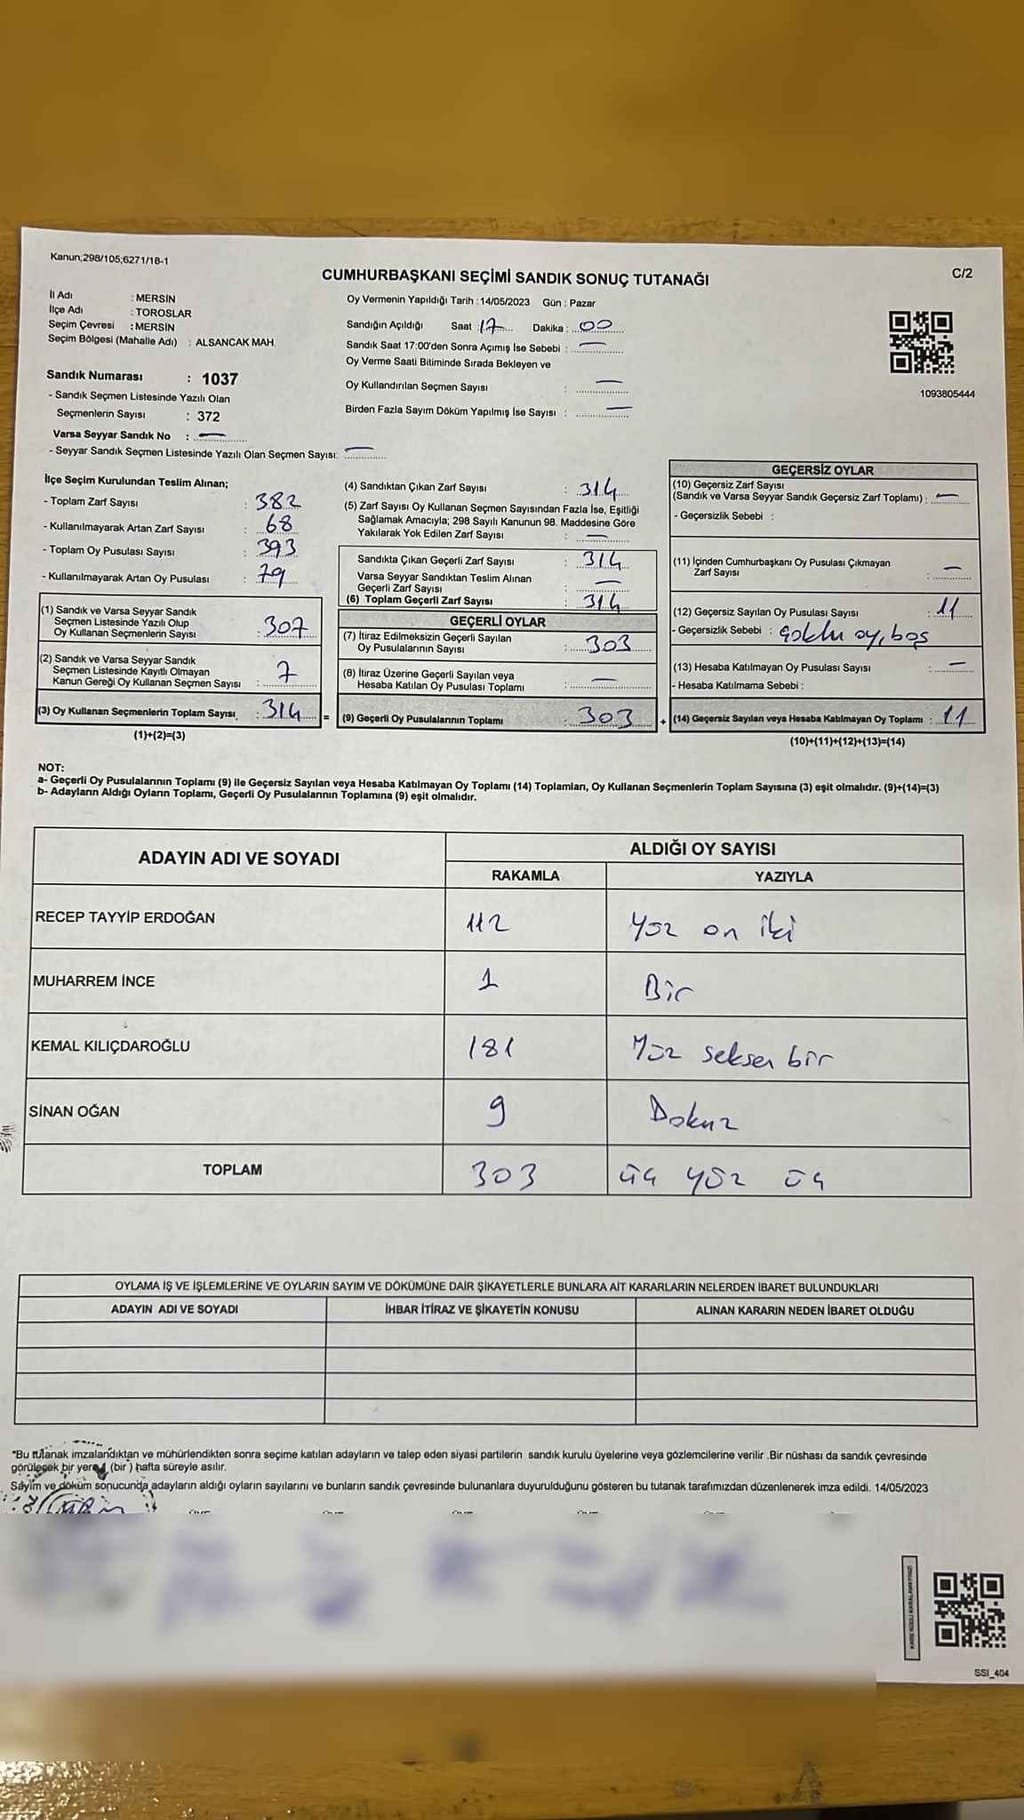 Kanun;298/105;6271/18-1
CUMHURBAŞKANI SEÇİMİ SANDIK SONUÇ TUTANAĞI
C/2
İl Adı : MERSİN
İlçe Adı : TOROSLAR
Seçim Çevresi : MERSİN
Seçim Bölgesi (Mahalle Adı) : ALSANCAK MAH.
Sandık Numarası : 1037
- Sandık Seçmen Listesinde Yazılı Olan
Seçmenlerin Sayısı : 372
Varsa Seyyar Sandık No : —
- Seyyar Sandık Seçmen Listesinde Yazılı Olan Seçmen Sayısı: —
Oy Vermenin Yapıldığı Tarih : 14/05/2023 Gün : Pazar
Sandığın Açıldığı Saat : 17 Dakika : 00
Sandık Saat 17:00'den Sonra Açımış İse Sebebi : —
Oy Verme Saati Bitiminde Sırada Bekleyen ve
Oy Kullandırılan Seçmen Sayısı : —
Birden Fazla Sayım Döküm Yapılmış İse Sayısı : —
1093805444
İlçe Seçim Kurulundan Teslim Alınan;
- Toplam Zarf Sayısı : 382
- Kullanılmayarak Artan Zarf Sayısı : 68
- Toplam Oy Pusulası Sayısı : 393
- Kullanılmayarak Artan Oy Pusulası : 79
(1) Sandık ve Varsa Seyyar Sandık
Seçmen Listesinde Yazılı Olup
Oy Kullanan Seçmenlerin Sayısı : 307
(2) Sandık ve Varsa Seyyar Sandık
Seçmen Listesinde Kayıtlı Olmayan
Kanun Gereği Oy Kullanan Seçmen Sayısı : 7
(3) Oy Kullanan Seçmenlerin Toplam Sayısı : 314 =
(1)+(2)=(3)
(4) Sandıktan Çıkan Zarf Sayısı : 314
(5) Zarf Sayısı Oy Kullanan Seçmen Sayısından Fazla İse, Eşitliği
Sağlamak Amacıyla; 298 Sayılı Kanunun 98. Maddesine Göre
Yakılarak Yok Edilen Zarf Sayısı : —
Sandıkta Çıkan Geçerli Zarf Sayısı : 314
Varsa Seyyar Sandıktan Teslim Alınan
Geçerli Zarf Sayısı : —
(6) Toplam Geçerli Zarf Sayısı : 314
GEÇERLİ OYLAR
(7) İtiraz Edilmeksizin Geçerli Sayılan
Oy Pusulalarının Sayısı : 303
(8) İtiraz Üzerine Geçerli Sayılan veya
Hesaba Katılan Oy Pusulası Toplamı : —
(9) Geçerli Oy Pusulalarının Toplamı : 303 +
GEÇERSİZ OYLAR
(10) Geçersiz Zarf Sayısı
(Sandık ve Varsa Seyyar Sandık Geçersiz Zarf Toplamı) : —
- Geçersizlik Sebebi :
(11) İçinden Cumhurbaşkanı Oy Pusulası Çıkmayan
Zarf Sayısı : —
(12) Geçersiz Sayılan Oy Pusulası Sayısı : 11
- Geçersizlik Sebebi : Çoklu oy, boş
(13) Hesaba Katılmayan Oy Pusulası Sayısı : —
- Hesaba Katılmama Sebebi :
(14) Geçersiz Sayılan veya Hesaba Katılmayan Oy Toplamı : 11
(10)+(11)+(12)+(13)=(14)
NOT:
a- Geçerli Oy Pusulalarının Toplamı (9) ile Geçersiz Sayılan veya Hesaba Katılmayan Oy Toplamı (14) Toplamları, Oy Kullanan Seçmenlerin Toplam Sayısına (3) eşit olmalıdır. (9)+(14)=(3)
b- Adayların Aldığı Oyların Toplamı, Geçerli Oy Pusulalarının Toplamına (9) eşit olmalıdır.
ADAYIN ADI VE SOYADI ALDIĞI OY SAYISI
RAKAMLA YAZIYLA
RECEP TAYYİP ERDOĞAN 112 Yüz on iki
MUHARREM İNCE 1 Bir
KEMAL KILIÇDAROĞLU 181 Yüz seksen bir
SİNAN OĞAN 9 Dokuz
TOPLAM 303 üç yüz üç
OYLAMA İŞ VE İŞLEMLERİNE VE OYLARIN SAYIM VE DÖKÜMÜNE DAİR ŞİKAYETLERLE BUNLARA AİT KARARLARIN NELERDEN İBARET BULUNDUKLARI
ADAYIN ADI VE SOYADI İHBAR İTİRAZ VE ŞİKAYETİN KONUSU ALINAN KARARIN NEDEN İBARET OLDUĞU
*Bu tutanak imzalandıktan ve mühürlendikten sonra seçime katılan adayların ve talep eden siyasi partilerin sandık kurulu üyelerine veya gözlemcilerine verilir .Bir nüshası da sandık çevresinde
görülecek bir yere (bir ) hafta süreyle asılır.
Sayım ve döküm sonucunda adayların aldığı oyların sayılarını ve bunların sandık çevresinde bulunanlara duyurulduğunu gösteren bu tutanak tarafımızdan düzenlenerek imza edildi. 14/05/2023
SSI_404